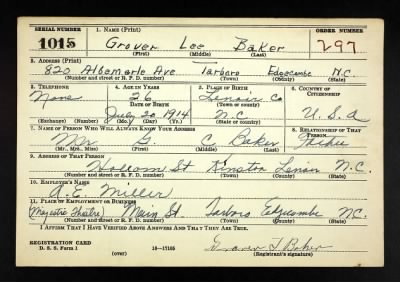 SERIAL NUMBER 1. NAME (Print) ORDER NUMBER
1015 Grover Lee Baker 297
(First) (Middle) (Last)
2. ADDRESS (Print)
820 Albemarle Ave Tarboro Edgecombe N.C.
(Number and street or R. F. D. number) (Town) (County) (State)
3. TELEPHONE 4. AGE IN YEARS 5. PLACE OF BIRTH 6. COUNTRY OF CITIZENSHIP
None 26 Lenoir Co
DATE OF BIRTH (Town or county)
July 20 1914 N.C U.S.A
(Exchange) (Number) (Mo.) (Day) (Yr.) (State or country)
7. NAME OF PERSON WHO WILL ALWAYS KNOW YOUR ADDRESS 8. RELATIONSHIP OF THAT PERSON
Mr G. C Baker
(Mr., Mrs., Miss) (First) (Middle) (Last)
9. ADDRESS OF THAT PERSON
St Kinston Lenoir N.C.
(Number and street or R. F. D. number) (Town) (County) (State)
10. EMPLOYER'S NAME
A.E. Miller
11. PLACE OF EMPLOYMENT OR BUSINESS
(Majestic Theatre) Main St. Tarboro Edgecombe NC.
(Number and street or R. F. D. number) (Town) (County) (State)
I AFFIRM THAT I HAVE VERIFIED ABOVE ANSWERS AND THAT THEY ARE TRUE.
REGISTRATION CARD
D. S. S. Form 1 16-17105 Baker
(over) (Registrant's signature)